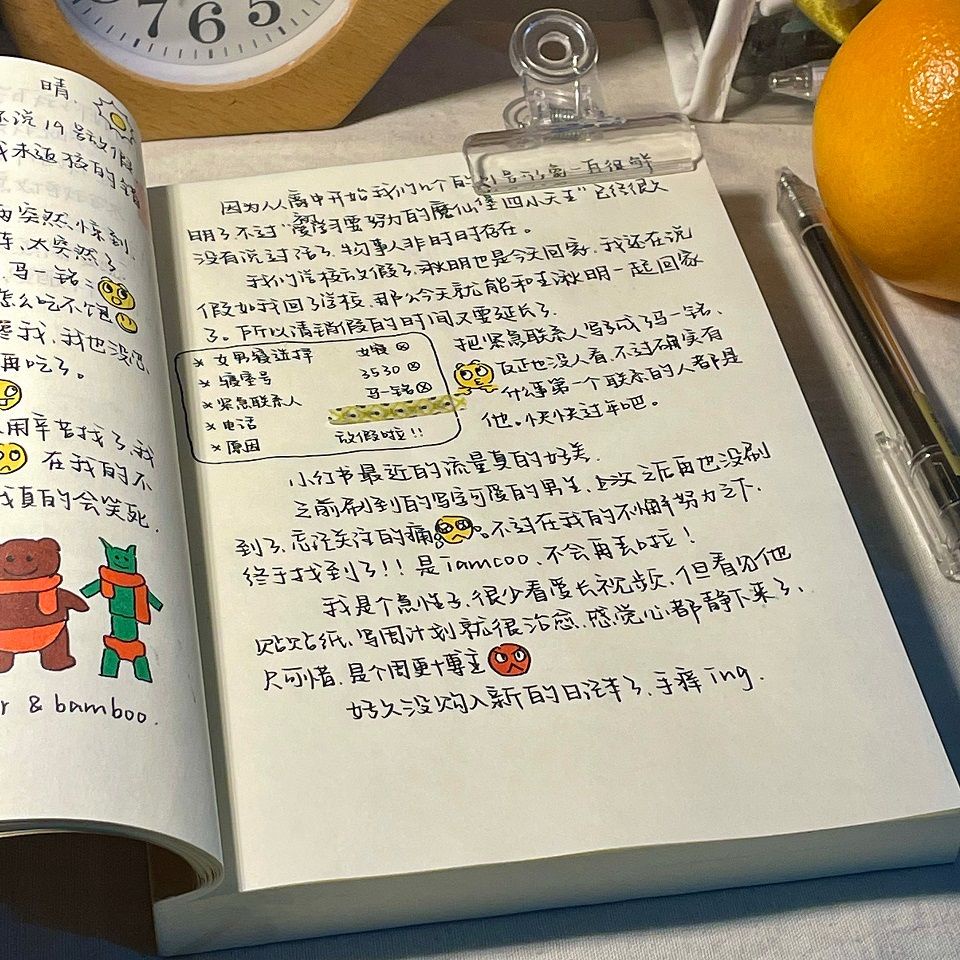 7 6 5
晴.
还说19号放假
我未返校的
突然.惊到
太突然了.
马一铭:
怎么吃不饱
我.我也没
再吃了.
用辛苦找了.我
在我的不
我真的会笑死.
& bamboo.
因为从高中开始我们几个的 一直很鲜
明了.不过“要努力的魔仙堡四小天王”已经很久
没有说过话了.物事人非时时存在。
我们学校放假了.湫明也是今天回家.我还在说
假如我回了学校.那么今天就能和王湫明一起回家
了。所以请销假的时间又要延长了.
* 女男寝选择 女寝
* 寝室号 3530
* 紧急联系人 马一铭
* 电话
* 原因 放假啦!!
把紧急联系人写成了马一铭、
反正也没人看.不过确实有
什么事第一个联系的人都是
他。快快过年吧。
小红书最近的流量真的好差.
之前刷到的写字可爱的男生,上次之后再也没刷
到了.忘记关注的痛。不过在我的不懈努力之下.
终于找到了!!是Iamcoo.不会再丢啦!
我是个急性子.很少看爱长视频.但看见他
贴贴纸.写周计划就很治愈.感觉心都静下来了、
只可惜.是个周更博主
好久没购入新的日记本了.手痒ing.